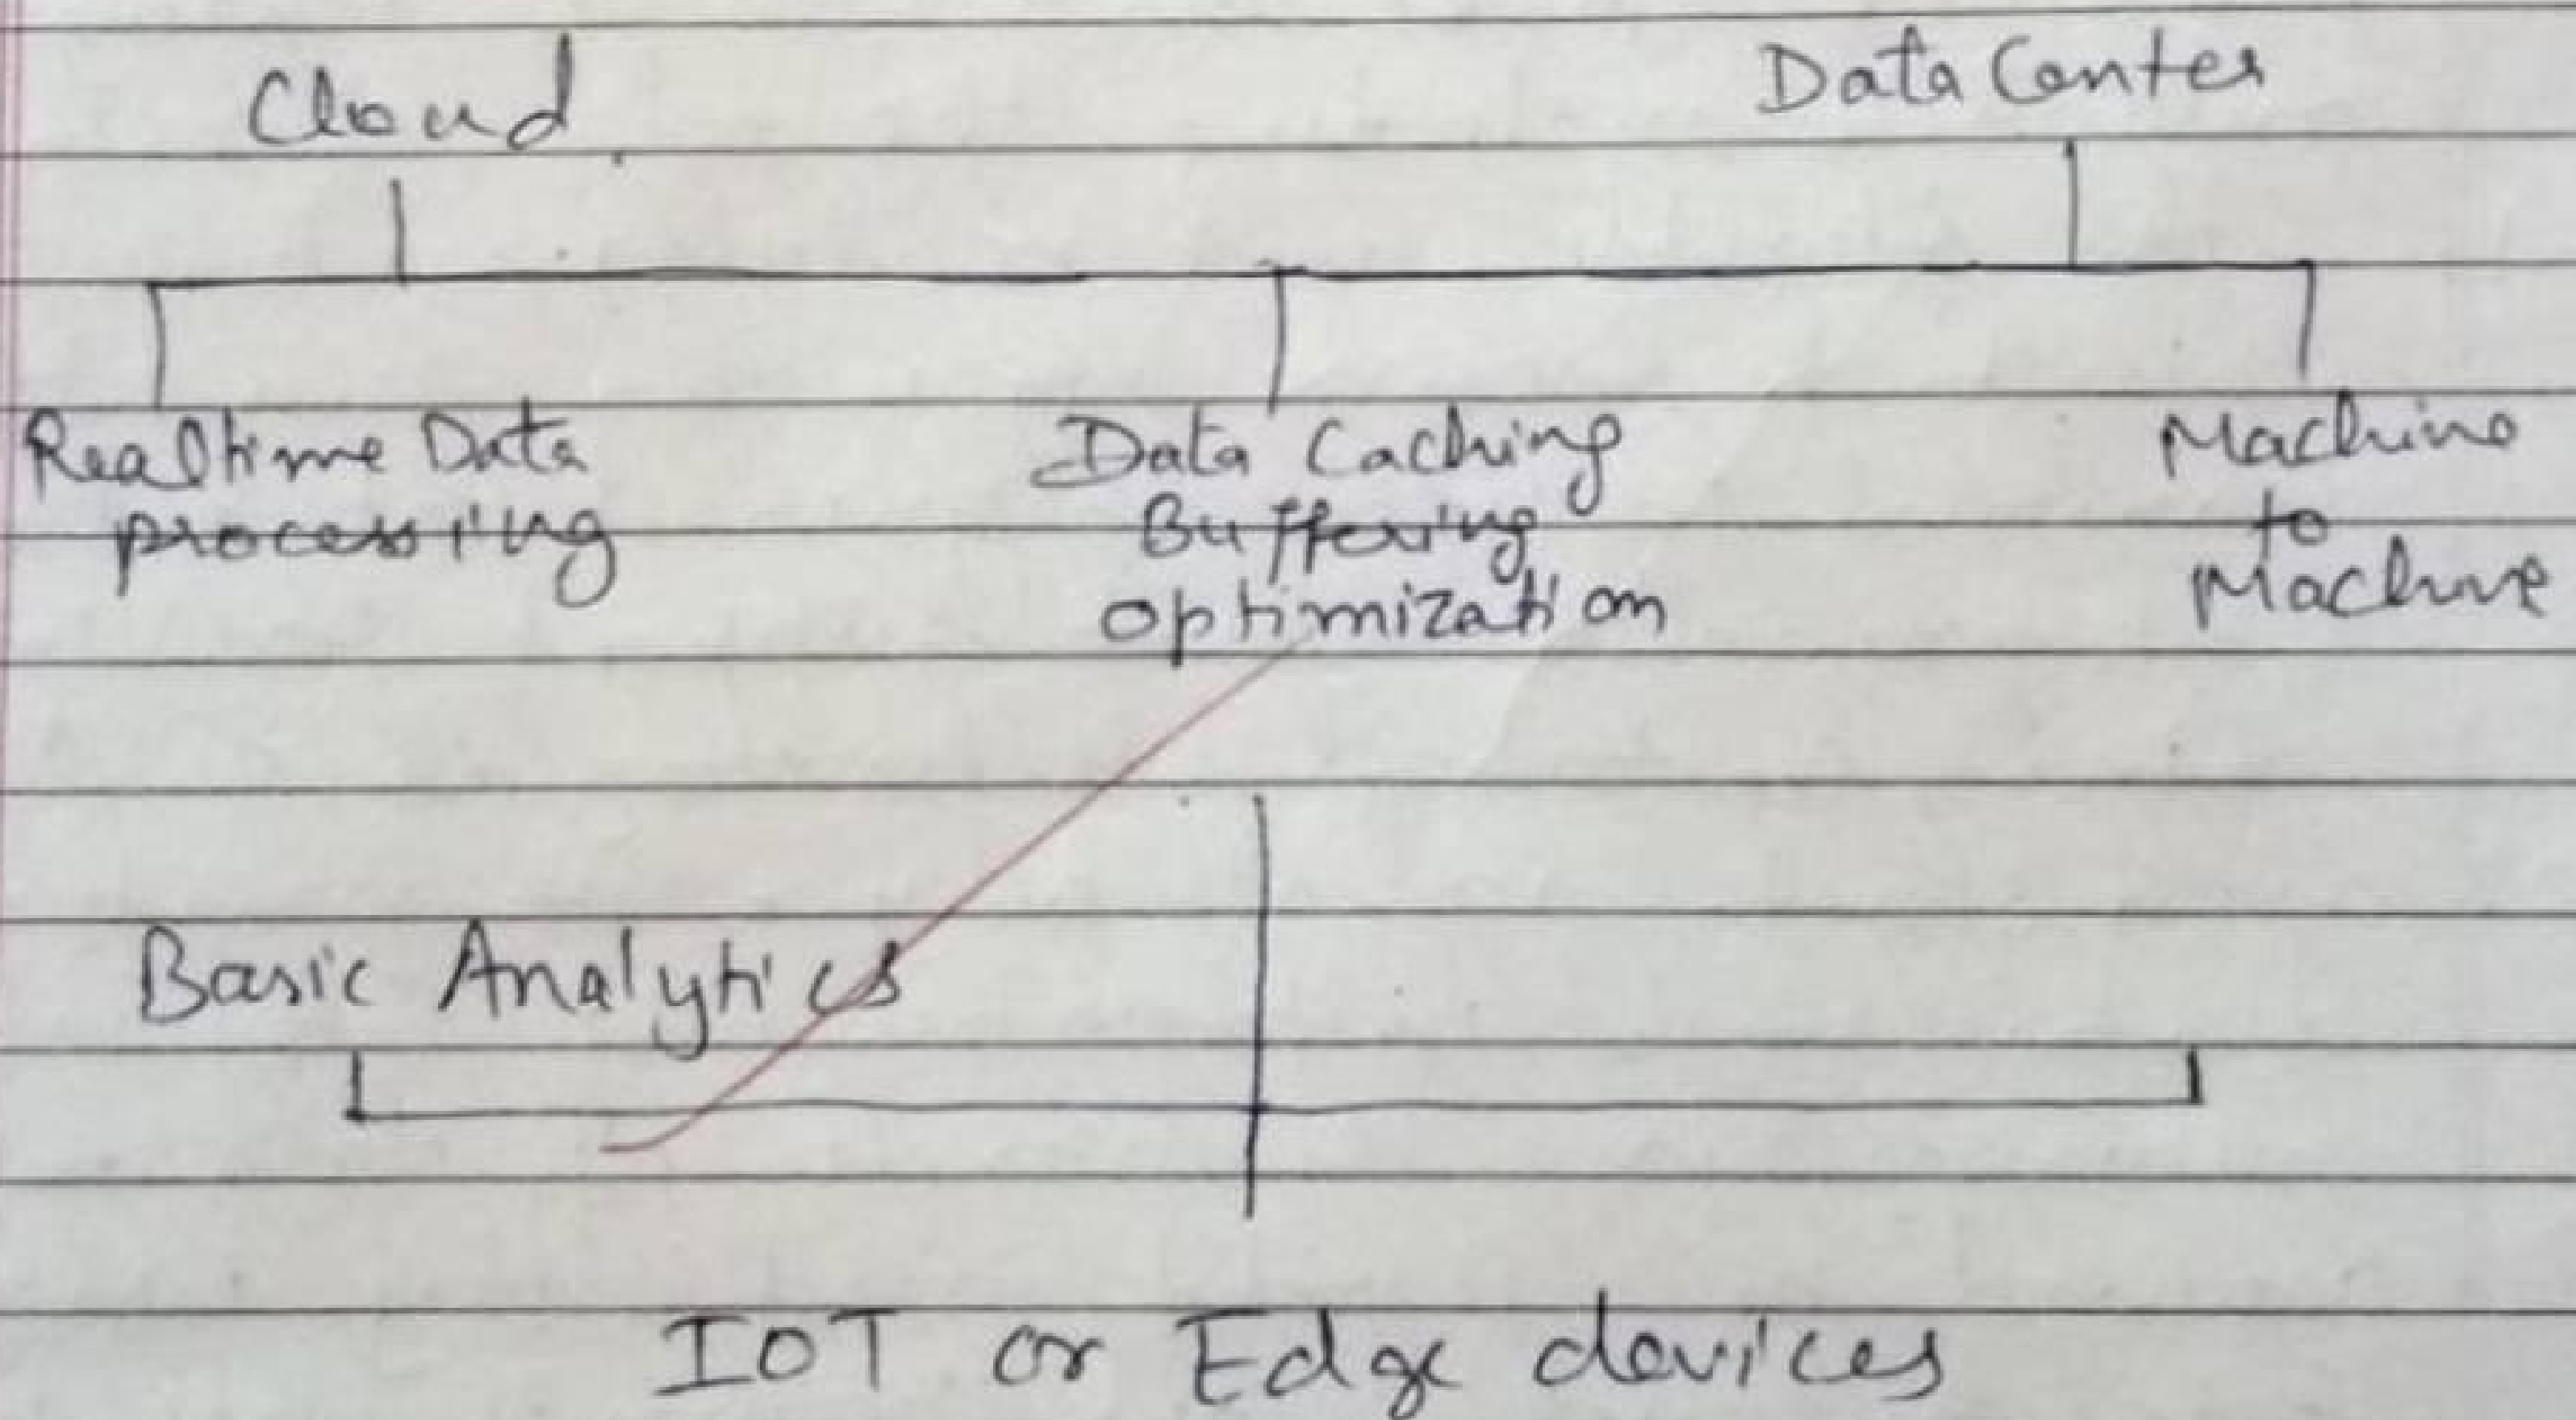 Cloud
Data Center
Realtime Data
processing
Data Caching
Buffering
optimization
Machine
to
Machine
Basic Analytics
IOT or Edge devices